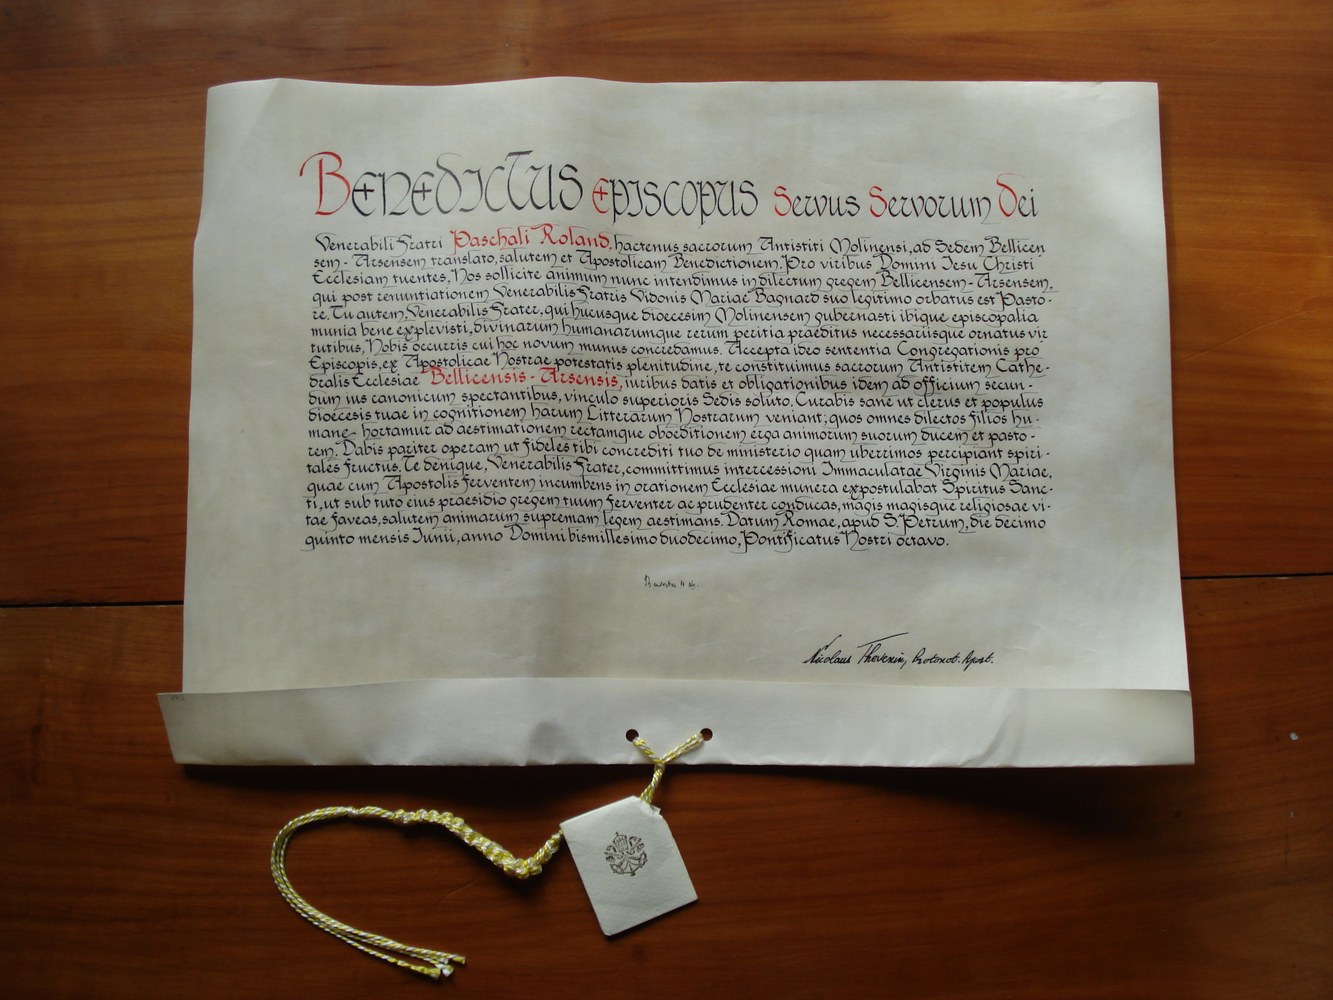 Benedictus Episcopus Servus Servorum Dei
Venerabili Fratri Paschali Roland, hactenus sacrorum Antistiti Molinensi, ad Sedem Bellicen
sem - Arsensem translato, salutem et Apostolicam Benedictionem. Pro viribus Domini Iesu Christi
Ecclesiam tuentes, Nos sollicite animum nunc intendimus in dilectum gregem Bellicensem - Arsensem,
qui post renuntiationem Venerabilis Fratris Vidonis Mariae Bagnard suo legitimo orbatus est Pasto-
re. Tu autem, Venerabilis Frater, qui hucusque dioecesim Molinensem gubernasti ibique episcopalia
munia bene explevisti, divinarum humanarumque rerum peritia praeditus necessariisque ornatus vir
tutibus, Nobis occurris cui hoc novum munus concredamus. Accepta ideo sententia Congregationis pro
Episcopis, ex Apostolicae Nostrae potestatis plenitudine, te constituimus sacrorum Antistitem Cathe-
dralis Ecclesiae Bellicensis - Arsensis, iuribus datis et obligationibus idem ad officium secun-
dum ius canonicum spectantibus, vinculo superioris Sedis soluto. Curabis sane ut clerus et populus
dioecesis tuae in cognitionem harum Litterarum Nostrarum veniant; quos omnes dilectos filios hu-
mane hortamur ad aestimationem rectamque oboeditionem erga animorum suorum ducem et pasto-
rem. Dabis pariter operam ut fideles tibi concrediti tuo de ministerio quam uberrimos percipiant spiri-
tales fructus. Te denique, Venerabilis Frater, committimus intercessioni Immaculatae Virginis Mariae,
quae cum Apostolis ferventem incumbens in orationem Ecclesiae munera expostulabat Spiritus Sanc-
ti, ut sub tuto eius praesidio gregem tuum ferventer ac prudenter conducas, magis magisque religiosae vi-
tae faveas, salutem animarum supremam legem aestimans. Datum Romae, apud S. Petrum, die decimo
quinto mensis Iunii, anno Domini bismillesimo duodecimo, Pontificatus Nostri octavo.
Nicolaus Thevenin, Protonot. Apost.